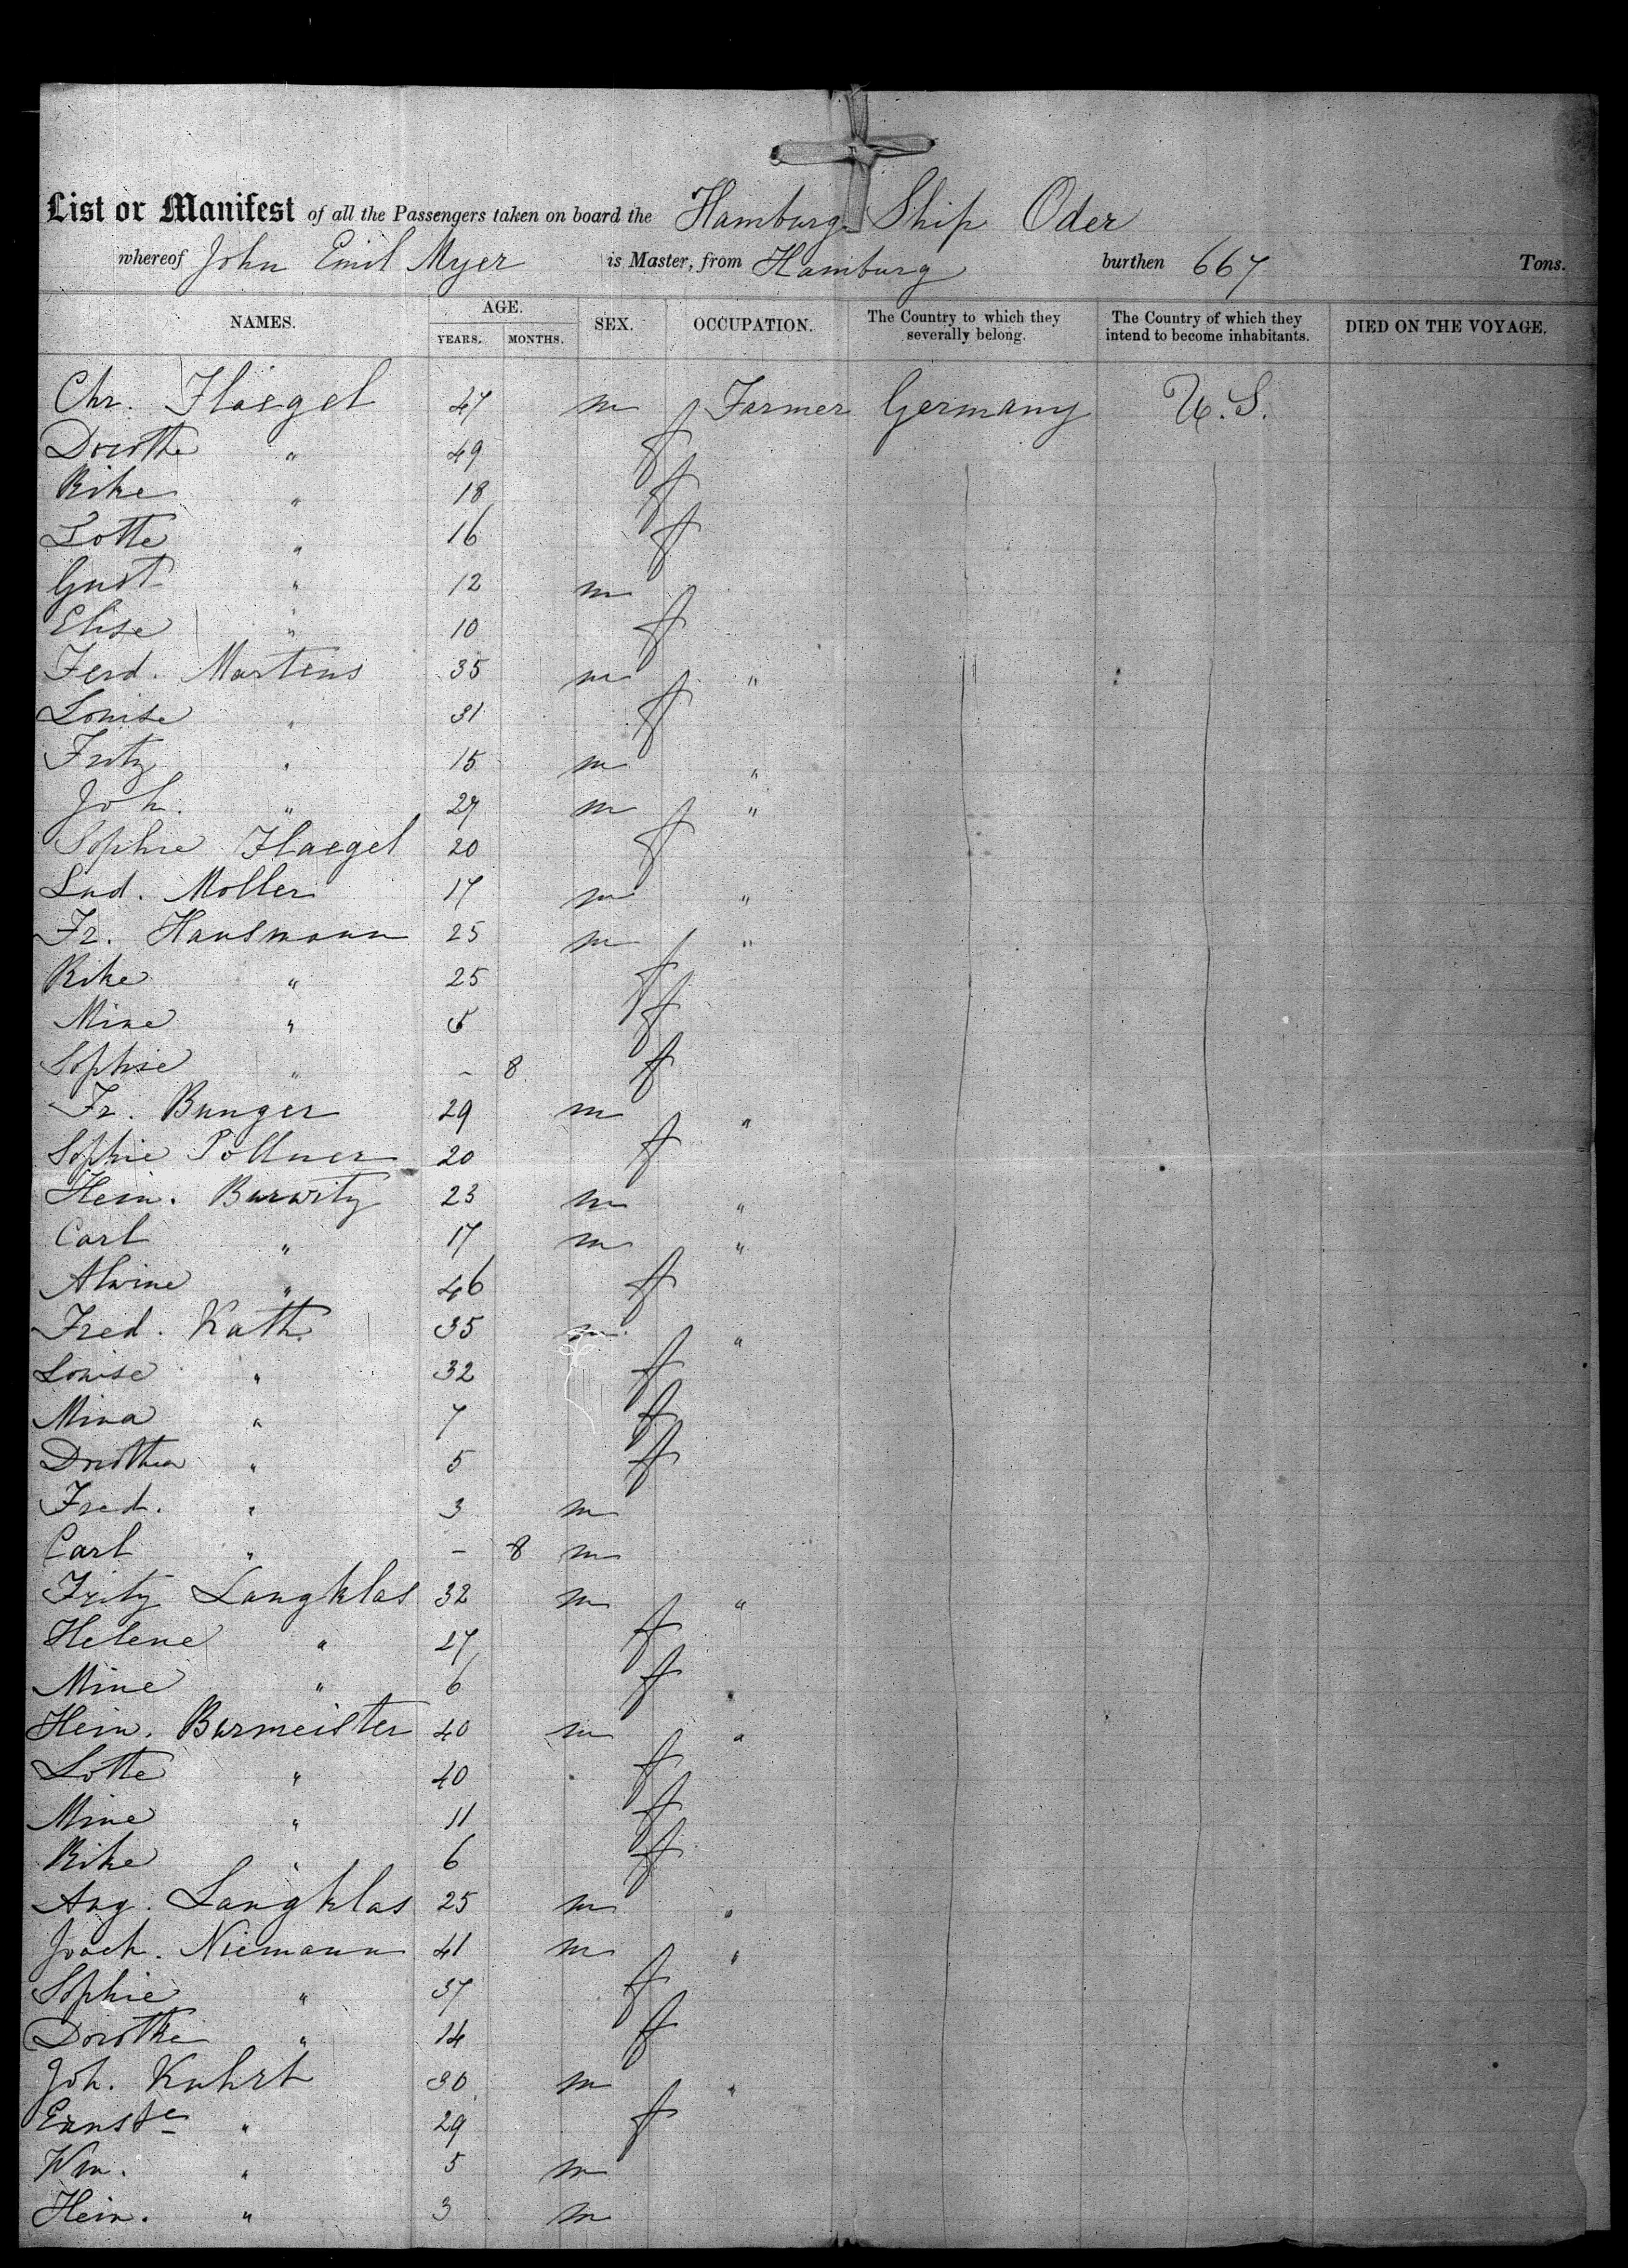 List or Manifest of all the Passengers taken on board the Hamburg Ship Oder
whereof John Emil Myer is Master, from Hamburg burthen 667 Tons.
NAMES. AGE. YEARS. MONTHS. SEX. OCCUPATION. The Country to which they severally belong. The Country of which they intend to become inhabitants. DIED ON THE VOYAGE.
Chr. Flaegel 47 m Farmer Germany U.S.
Dorothe " 49 f
Rike " 18 f
Lotte " 16 f
Gust " 12 m
Elise " 10 f
Ferd. Martens 35 m "
Louise " 31 f
Fritz " 15 m "
Joh. " 27 m "
Sophie Flaegel 20 f
Lud. Moller 17 m "
Fr. Hausmann 25 m "
Rike " 25 f
Mine " 5 f
Sophie " – 8 f
Fr. Bunger 29 m "
Sophie Pollner 20 f
Hein. Burwitz 23 m "
Carl " 17 m "
Alwine " 46 f
Fred. Kath 35 m "
Louise " 32 f
Mina " 7 f
Dorothea " 5 f
Fred. " 3 m
Carl " – 8 m
Fritz Langklas 32 m "
Helene " 27 f
Mine " 6 f "
Hein. Burmeister 40 m "
Lotte " 40 f
Mine " 11 f
Rike " 6 f
Aug. Langklas 25 m "
Joach. Niemann 41 m "
Sophie " 37 f
Dorothe " 14 f
Joh. Kuhrt 30 m "
Ernste " 29 f
Wm. " 5 m
Hein. " 3 m